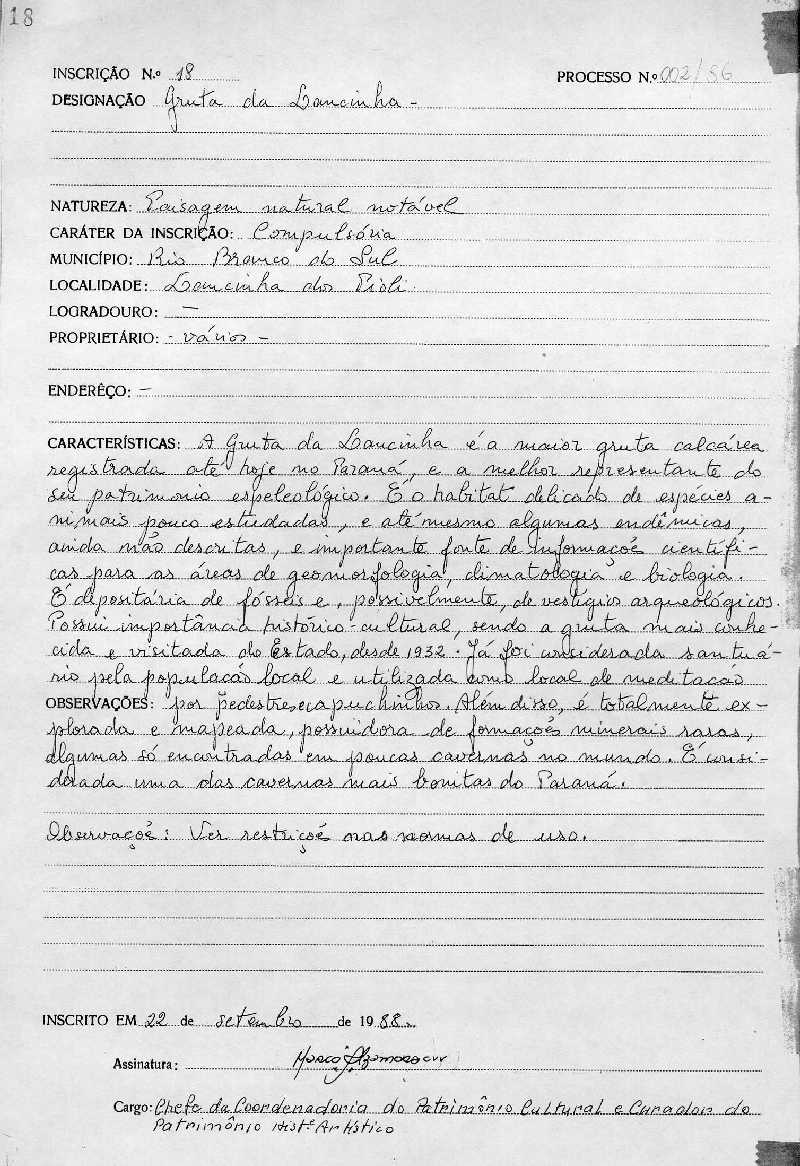 18
INSCRIÇÃO N.º 18 PROCESSO N.º 002/86
DESIGNAÇÃO Gruta da Lancinha -
NATUREZA: Paisagem natural notável
CARÁTER DA INSCRIÇÃO: Compulsória
MUNICÍPIO: Rio Branco do Sul
LOCALIDADE: Lancinha dos Pioli
LOGRADOURO: —
PROPRIETÁRIO: - vários -
ENDERÊÇO: —
CARACTERÍSTICAS: A Gruta da Lancinha é a maior gruta calcárea
registrada até hoje no Paraná, e a melhor representante do
seu patrimonio espeleológico. É o habitat delicado de espécies a-
nimais pouco estudadas, e até mesmo algumas endêmicas,
ainda não descritas, e importante fonte de informaçõe científi-
cas para as áreas de geomorfologia, climatologia e biologia.
É depositária de fósseis e, possivelmente, de vestígios arqueológicos.
Possui importância histórico-cultural, sendo a gruta mais conhe-
cida e visitada do Estado, desde 1932. Já foi considerada santuá-
rio pela população local e utilizada como local de meditação
OBSERVAÇÕES: por pedestres e capuchinhos. Além disso, é totalmente ex-
plorada e mapeada, possuidora de formações minerais raras,
algumas só encontradas em poucas cavernas no mundo. É consi-
derada uma das cavernas mais bonitas do Paraná.
Observaçõe: Ver restriçõe nas normas de uso.
INSCRITO EM 22 de setembro de 1988
Assinatura:
Cargo: Chefe da Coordenadoria do Patrimônio Cultural e Curador do
Patrimônio Histº Artístico